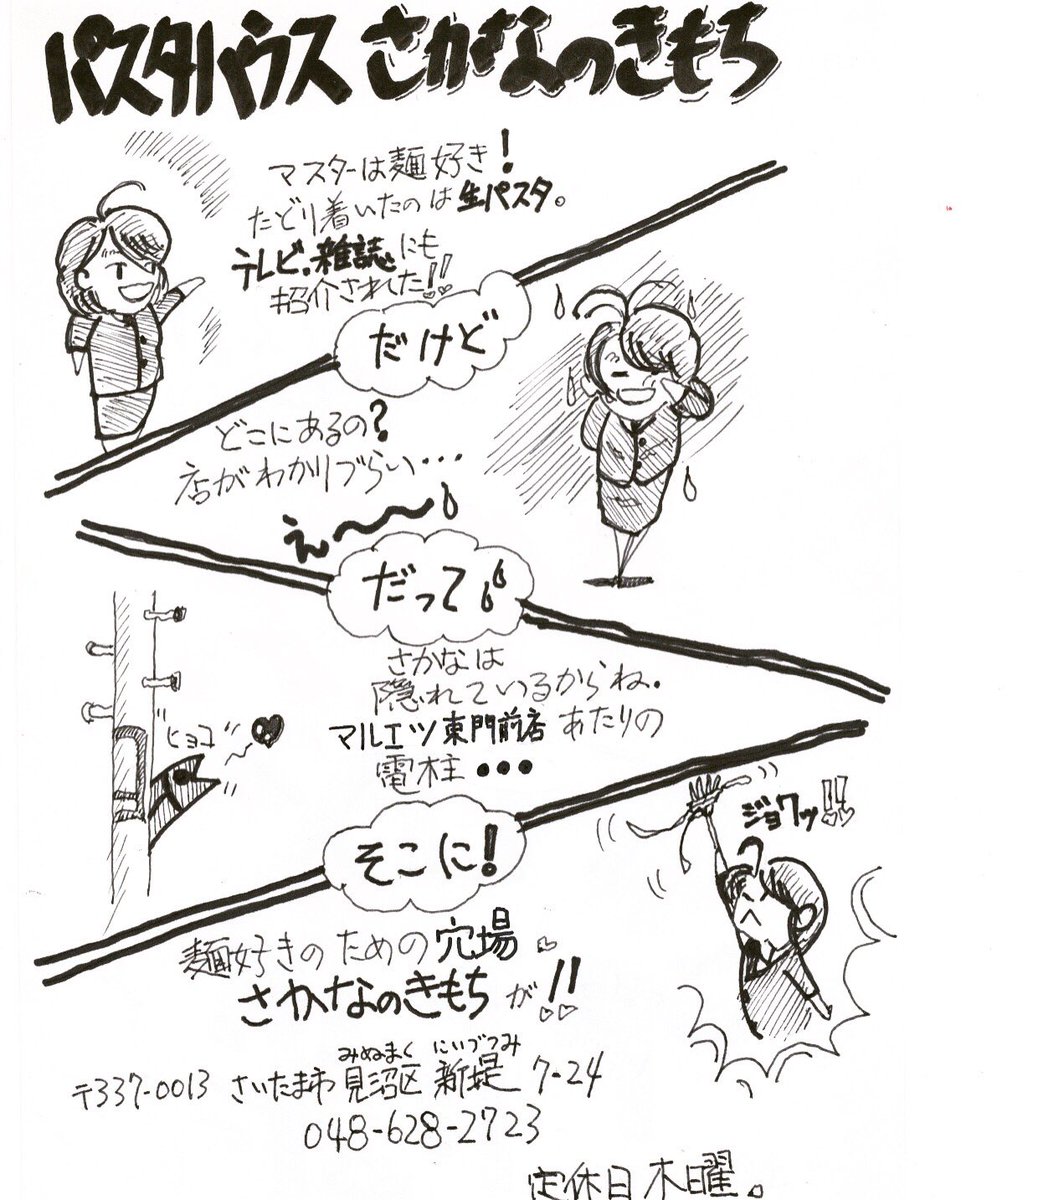 パスタハウス さかなのきもち
マスターは麺好き!
たどり着いたのは生パスタ。
テレビ、雑誌にも
紹介された!!
だけど
どこにあるの?
店がわかりづらい・・・
え〜〜
だって
さかなは
隠れているからね。
マルエツ東門前店あたりの
電柱・・・
ヒョコ
そこに!
ジョワッ!!
麺好きのための穴場。
さかなのきもちが!!
みぬまく にいづつみ
〒337-0013 さいたま市見沼区 新堤 7-24
048-628-2723
定休日 木曜。